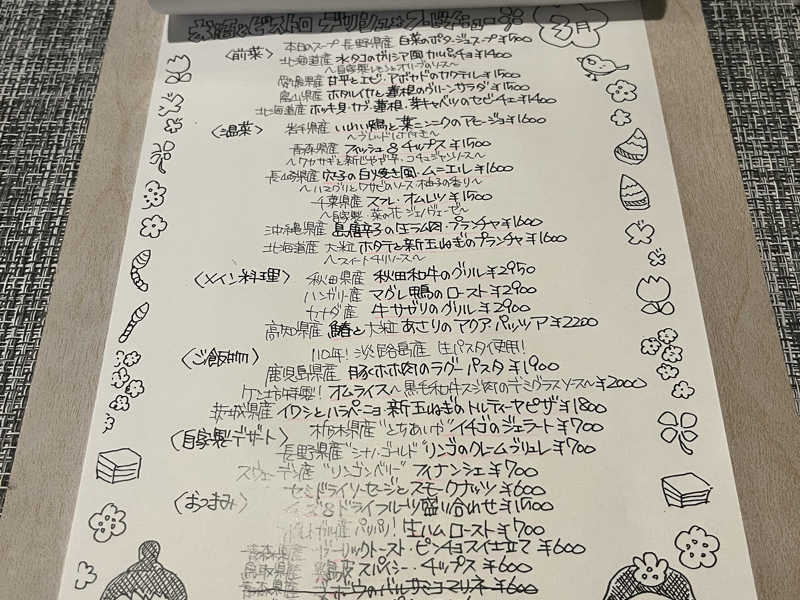 3月
〈前菜〉
本日のスープ 長野県産 白菜のポタージュスープ ¥500
北海道産 水タコのガリシア風カルパッチョ ¥1400
～自家製レモンとオリーブのソース～
愛媛県産 甘平とエビ、アボカドのカクテル ¥1500
富山県産 ホタルイカと蓮根のグリーンサラダ ¥1500
北海道産 ホッキ貝・カブ・蓮根・芽キャベツのセビーチェ ¥1400
〈温菜〉
岩手県産 いわい鶏と葉ニンニクのアヒージョ ¥1600
青森県産 フィッシュ&チップス ¥1500
～ワカサギと新じゃが芋、コチュジャンソース～
長崎県産 穴子の白焼き風・ムニエル ¥1600
～ハマグリとワサビのソース 柚子の香り～
千葉県産 スフレ・オムレツ ¥1500
～自家製・菜の花ジェノヴェーゼ～
沖縄県産 島唐辛子の生ラム肉・プランチャ ¥1600
北海道産 大粒 ホタテと新玉ねぎのプランチャ ¥1600
～スイートチリソース～
〈メイン料理〉
秋田県産 秋田和牛のグリル ¥2950
ハンガリー産 マグレ鴨のロースト ¥2900
カナダ産 牛サガリのグリル ¥2900
高知県産 鰆と大粒あさりのアクアパッツァ ¥2200
〈ご飯物〉
110年！淡路島産 生パスタ使用！
鹿児島県産 豚ホホ肉のラグーパスタ ¥1900
オムライス～黒毛和牛スジ肉のデミグラスソース～ ¥2000
茨城県産 イワシとハラペーニョ 新玉ねぎのトルティーヤピザ ¥1800
〈自家製デザート〉
栃木県産 "とちあいか" イチゴのジェラート ¥700
長野県産 "シナノゴールド" リンゴのクレームブリュレ ¥700
スウェーデン産 "リンゴンベリー" フィナンシェ ¥700
〈おつまみ〉
セミドライソーセージとスモークナッツ ¥600
&ドライフルーツ盛り合わせ ¥1500
パリパリ！生ハムロースト ¥700
青森県産 ガーリックトースト・ピンチョス仕立て ¥600
鳥取県産 スパイシー・チップス ¥600
ゴボウのバルサミコマリネ ¥600